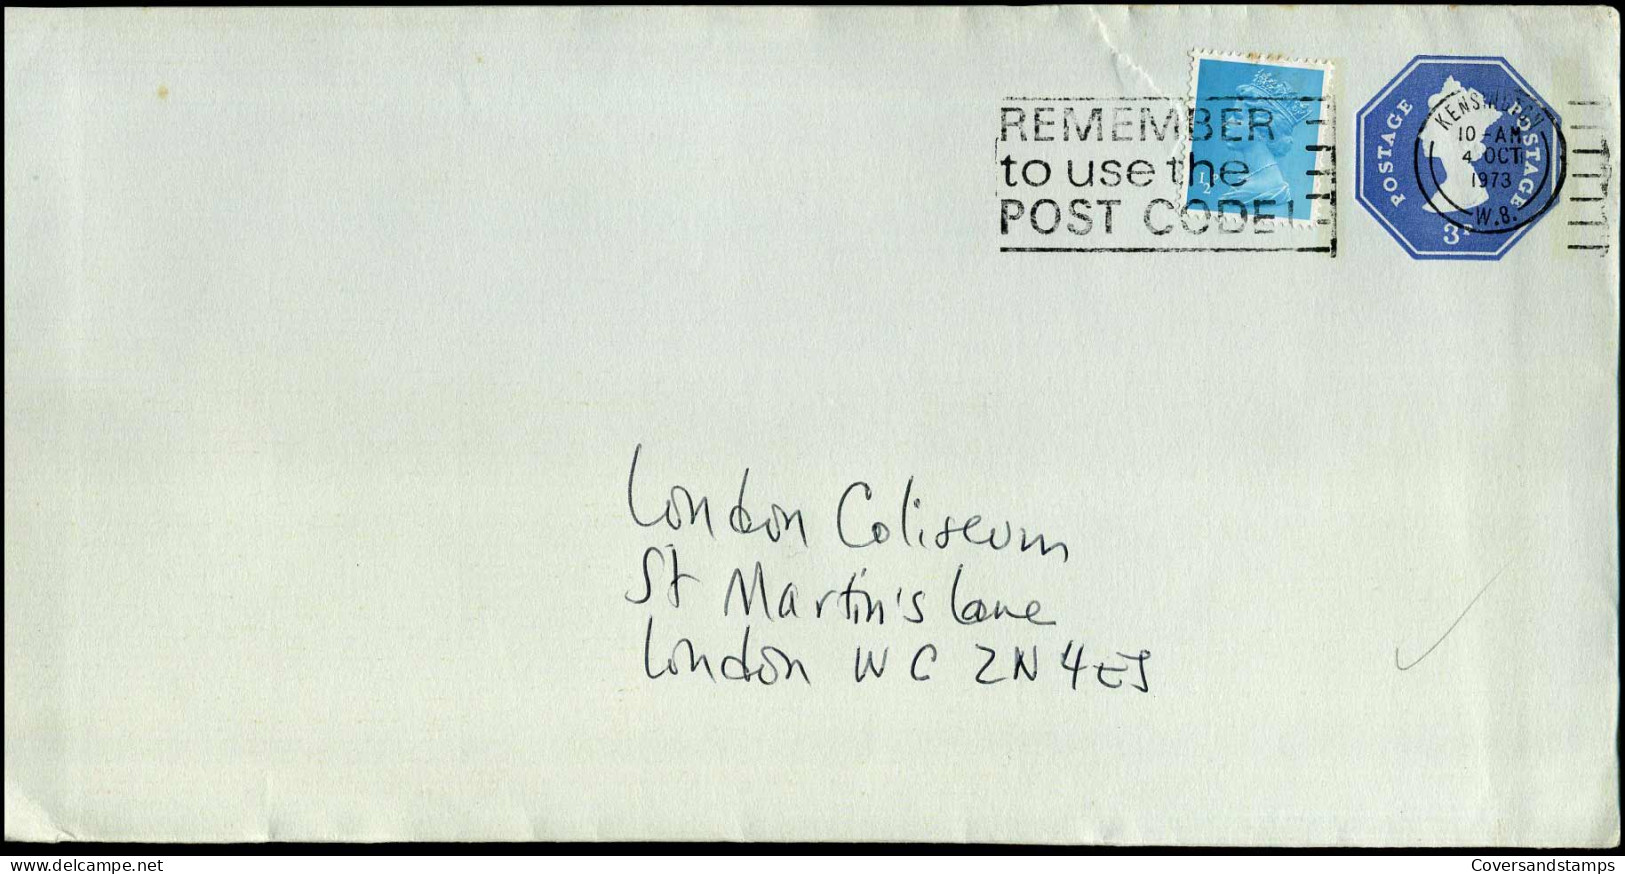 REMEMBER
to use the
POST CODE!
1/2
POSTAGE POSTAGE
3P
KENSINGTON
10-AM
4 OCT
1973
W.8.
London Coliseum
St Martin's Lane
London WC 2N 4ES
www.delcampe.net
Coversandstamps